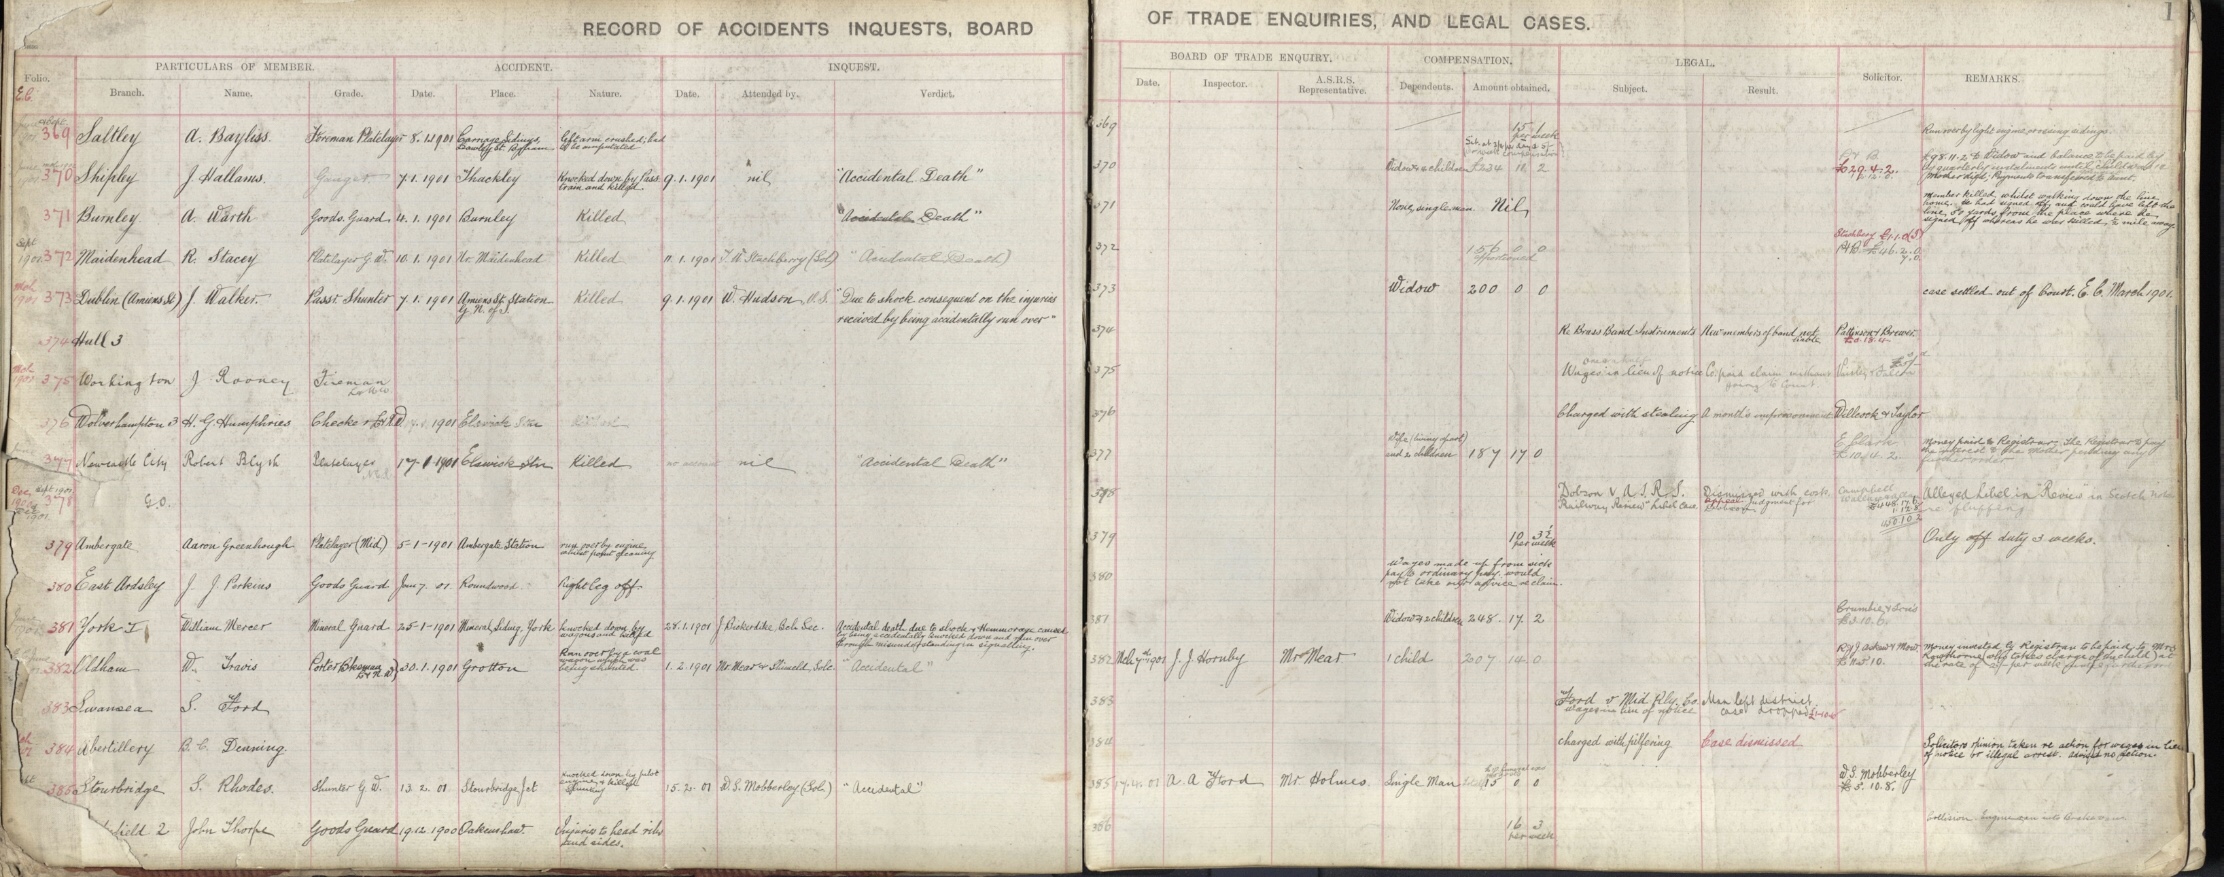 RECORD OF ACCIDENTS INQUESTS, BOARD OF TRADE ENQUIRIES, AND LEGAL CASES.
1
Folio. PARTICULARS OF MEMBER. ACCIDENT. INQUEST.
E.C. Branch. Name. Grade. Date. Place. Nature. Date. Attended by. Verdict.
369 Saltley A. Bayliss. Foreman Platelayer 8.1.1901 Carriage Sidings, left arm crushed; had
Lawley St. B'gham to be amputated
370 Shipley J. Hallams. Ganger 7.1.1901 Thackley Knocked down by Pass. 9.1.1901 nil "Accidental Death"
train and killed.
371 Burnley A. Warth Goods. Guard 4.1.1901 Burnley Killed "Accidental Death"
Sept 1901 372 Maidenhead R. Stacey Platelayer G.W. 10.1.1901 Nr. Maidenhead Killed 11.1.1901 (Sol) "Accidental Death)
Mch 1901 373 Dublin (Amiens St) J. Walker. Passr. Shunter 7.1.1901 Amiens St. Station Killed 9.1.1901 W. Hudson, O.S. "Due to shock consequent on the injuries
G.N. of I. received by being accidentally run over"
374 Hull 3
Mch 1901 375 Workington J. Rooney Fireman
L&NW
376 Wolverhampton 3 H. G. Humphries Checker 1901 Elswick Stn Killed
377 Newcastle City Robert Blyth Platelayer 17-1-1901 Elswick Stn Killed nil "Accidental Death"
N.E.
Sept 1901 378 G.O.
379 Ambergate Aaron Greenhough Platelayer (Mid) 5-1-1901 Ambergate Station run over by engine
whilst point cleaning
380 East Ardsley J. J. Perkins Goods Guard Jan 7. 01. Roundwood. Right leg off
381 York I William Mercer Mineral Guard 25-1-1901 Mineral Siding, York knocked down by 28.1.1901 J Bickerdike Bch Sec. Accidental death due to shock & Hemmorage caused
wagons and killed by being accidentally knocked down and run over
through misunderstanding in signalling.
382 Oldham W. Travis Porter 30.1.1901 Grotton Run over by a coal 1.2.1901 Mr. Mear & "Accidental"
wagon which was
being shunted.
383 Swansea S. Ford
384 Abertillery B. C. Denning.
385 Stourbridge S. Rhodes. Shunter G.W. 13.2.01 Stourbridge Jct knocked down by pilot 15.2.01 W. S. Mobberley (Sol.) "Accidental"
engine & killed
shunting
field 2 John Thorpe Goods Guard 19.12.1900 Oakenshaw. Injuries to head ribs
and sides.
BOARD OF TRADE ENQUIRY. COMPENSATION. LEGAL. Solicitor. REMARKS.
Date. Inspector. A.S.R.S. Representative. Dependents. Amount obtained. Subject. Result.
369 15/1 per week Run over by light engine crossing sidings
370 Widow & 4 children £234 11 2 £29.4.2. £98.11.2 to Widow and balance to be paid by
371 None, single man. Nil, member killed whilst walking down the line
home. He had signed off, and could have left the
line, 50 yards from the place where he
signed off whereas he was killed ¾ mile away.
372 156 0 0 £46.2.0
373 Widow 200 0 0 case settled out of Court. E.C. March 1901.
374 Re Brass Band Instruments New members of band not liable Pattinson & Brewer
£0.18.4.
375 Wages in lieu of notice Co. paid claim without
going to Court
376 Charged with stealing 2 months imprisonment Willcock & Taylor
377 Wife (living apart) and 2 children 187 17 0 E. Clark £10.4.2. Money paid to Registrar. The Registrar to pay
the interest to the Mother pending any
further order.
378 Dobson v A.S.R.S. Dismissed with costs. Campbell Alleged Libel in "Review" in Scotch Note
"Railway Review" Libel Case. appeal Judgment for Dobson re "fluffing"
379 10 3½ per week Only off duty 3 weeks.
380 Wages made up from sick
pay to ordinary pay. would
not take our advice re claim.
381 Widow & 2 children 248. 17. 2 £3.10.6.
382 1901 J. J. Hornby Mr Mear 1 child 200 7 14 0 Money invested by Registrar to be paid to Mrs
who takes charge of child at
the rate of
383 Ford v Mid Rly. Co. Man left district.
Wages in lieu of notice case dropped
384 charged with pilfering Case dismissed Solicitors opinion taken re action for wages in lieu
of notice or illegal arrest. no action.
385 17.4.01 A. A. Ford Mr Holmes Single Man 15 0 0 W. S. Mobberley
£5.10.8.
386 16 3 per week Collision.